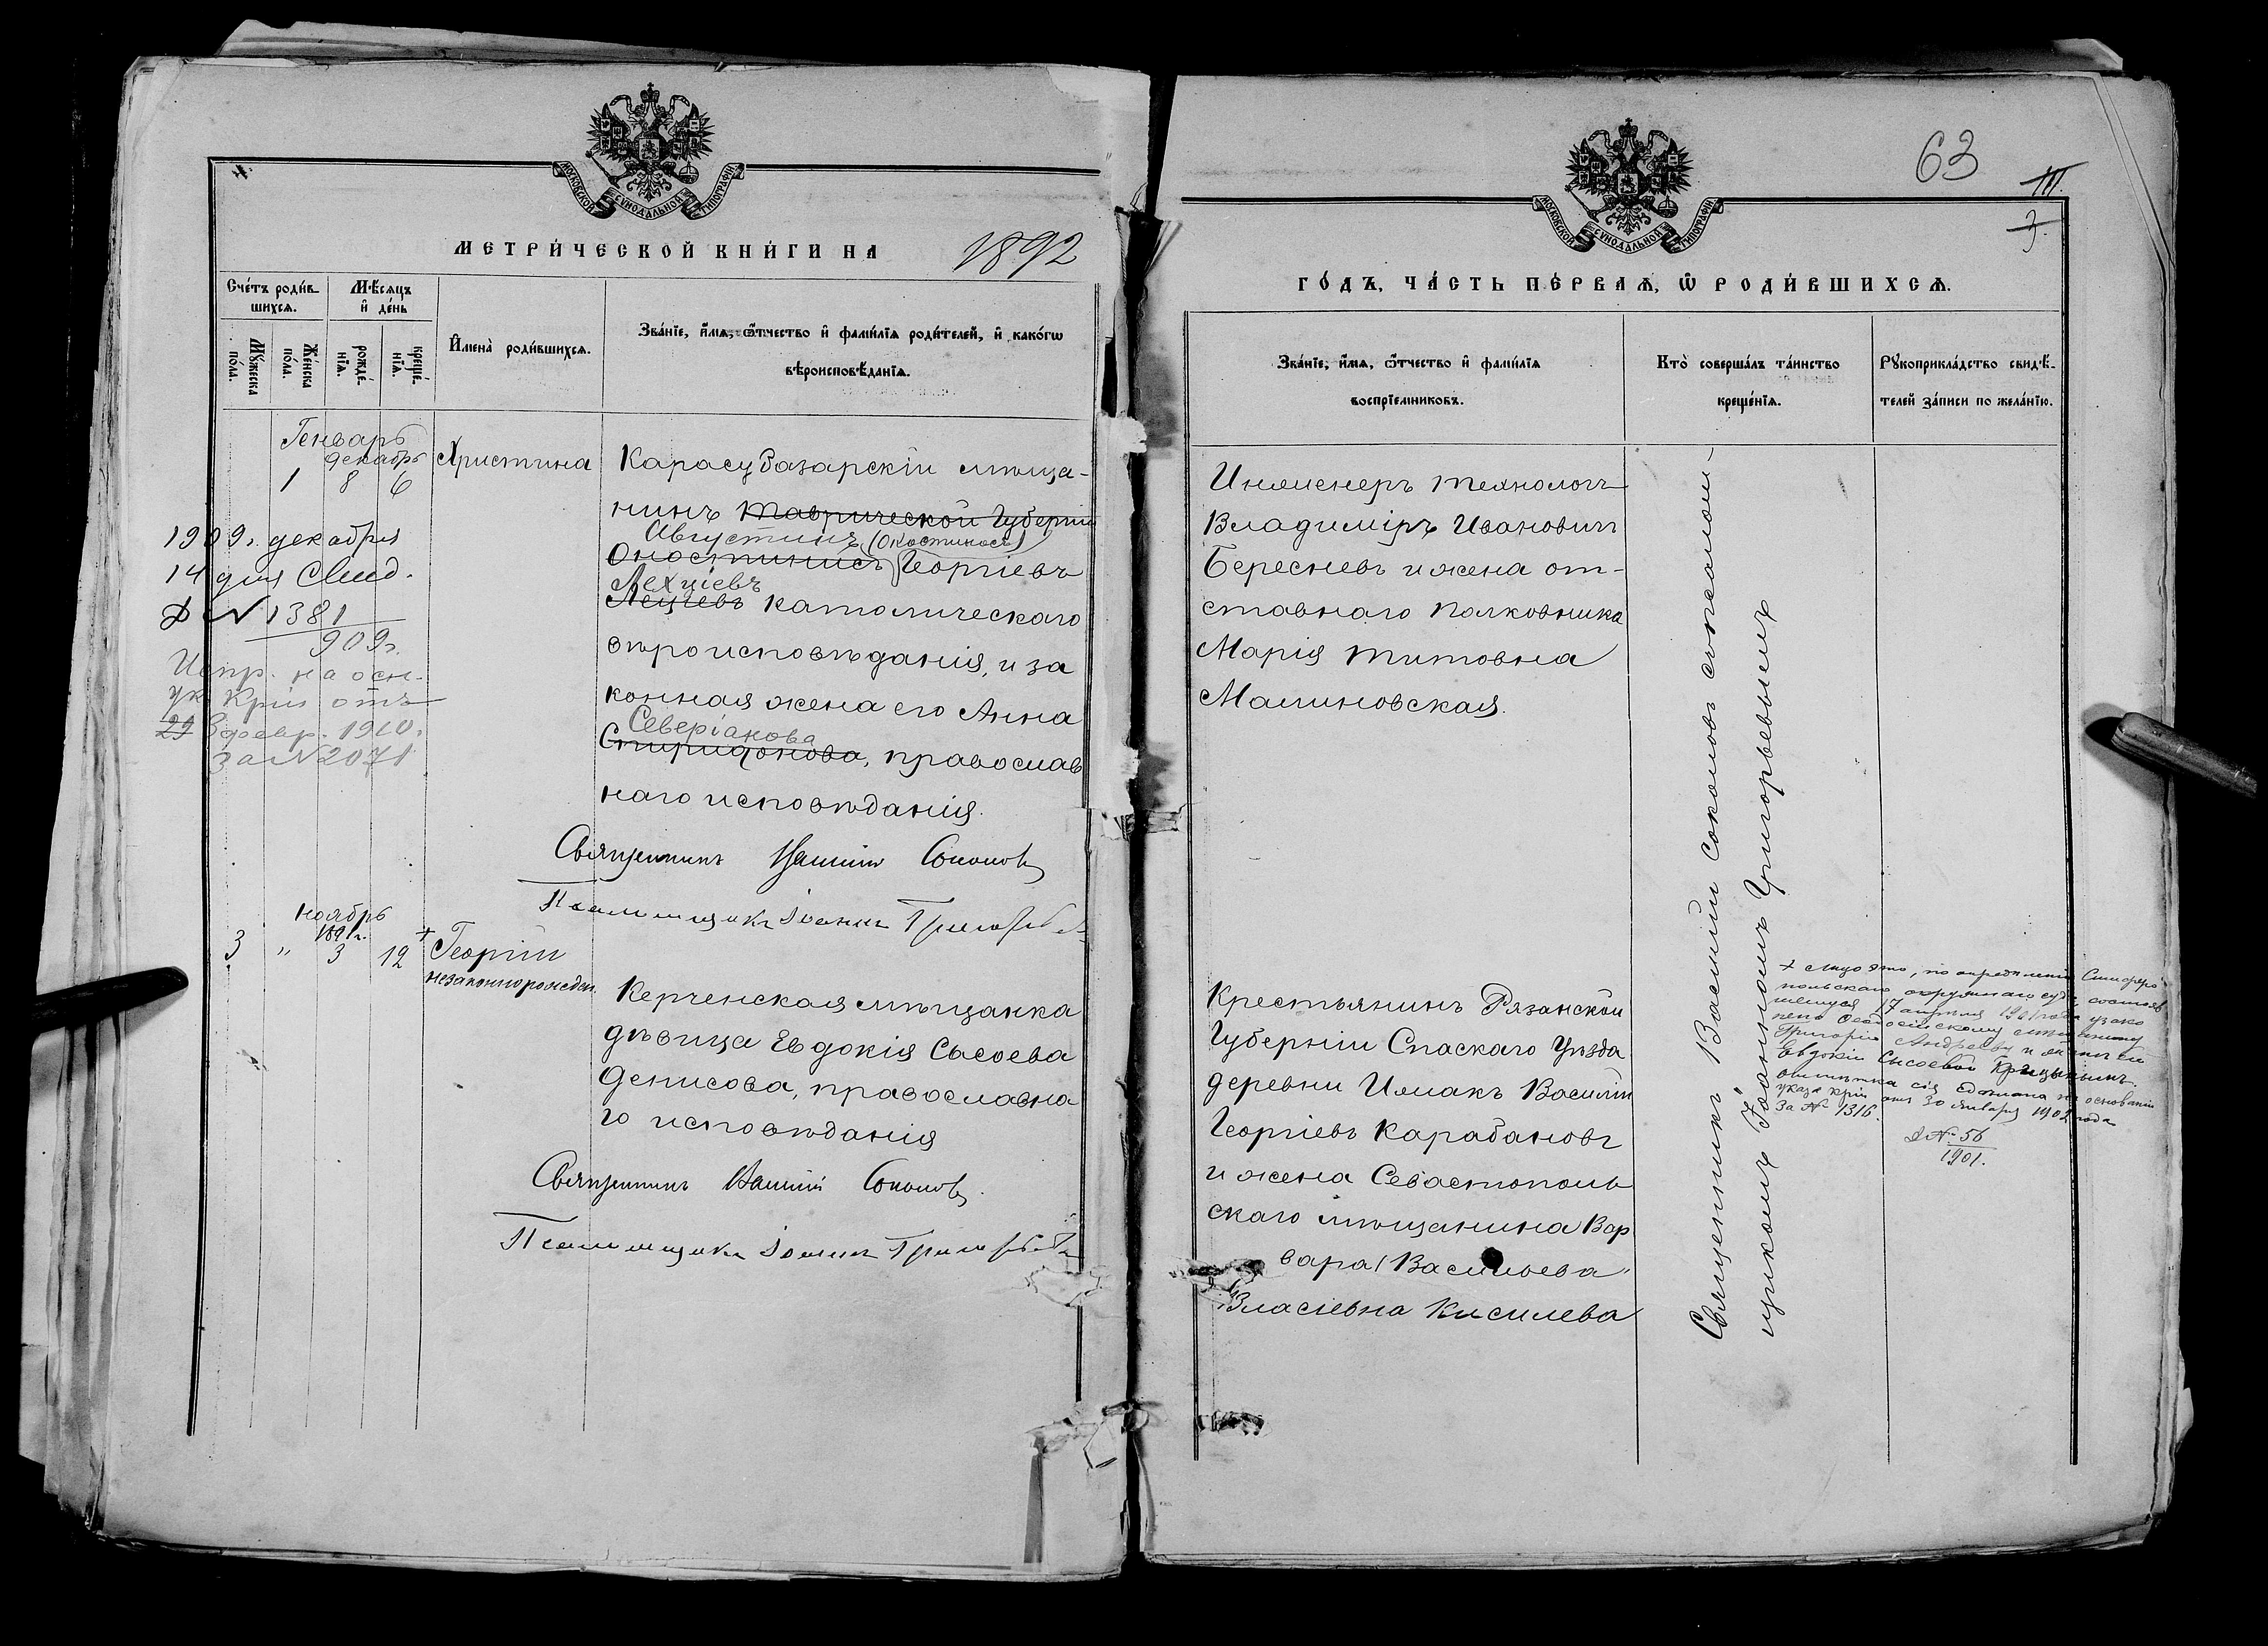 МОСКОВСКОЙ СУНОДАЛЬНОЙ ТИПОГРАФІИ
МЕТРИ́ЧЕСКОЙ КНИ́ГИ НА 1892
Сче́тъ роди́в-
шихсѧ.
Мѣ́сѧцъ
и҆ де́нь
Мꙋ́жеска
по́ла.
Же́нска
по́ла.
рожде́-
нїѧ.
креще́-
нїѧ.
И҆мена̀ роди́вшихсѧ.
Зва́нїе, и҆́мѧ, ѻ҆́тчество и҆ фами́лїѧ роди́телей, и҆ како́гѡ
вѣроисповѣ́данїѧ.
Генварь
декабрь
1 8 6
Христина
Карасубазарскій мѣща-
нинъ Таврической Губерніи
Августинъ (Окостиносъ)
Оностинисъ Георгіевъ
Лехціевъ
Лецгевъ католическаго
вѣроисповѣданія, и за
конная жена его Анна
Северіанова
Спиридонова, православ
наго исповѣданія.
Священникъ Василій Соколовъ
Псаломщикъ Іоаннъ Григорьевъ
1909г. декабря
14 дня Свид.
№ 1381
909г.
Испр. на осн.
ук. Крій отъ
29 3 февр. 1910.
За № 2071
ноябрь
1891г.
3 " 3 12
+ Георгій
незаконнорожден.
Керченская мѣщанка
дѣвица Евдокія Сысоева
Денисова, православна
го исповѣданія
Священникъ Василій Соколовъ
Псаломщикъ Іоаннъ Григорьевъ
63
III.
3
МОСКОВСКОЙ СУНОДАЛЬНОЙ ТИПОГРАФІИ
ГО́ДЪ, ЧА́СТЬ ПЕ́РВАѦ, Ѡ҆ РОДИ́ВШИХСѦ.
Зва́нїе, и҆́мѧ, ѻ҆́тчество и҆ фами́лїѧ
воспрїемниковъ.
Кто̀ соверша́лъ та́инство
креще́нїѧ.
Рꙋкоприкла́дство свидѣ́-
телей за́писи по жела́нїю.
Инженеръ технологъ
Владиміръ Ивановичъ
Бересневъ и жена от-
ставнаго Полковника
Марія Титовна
Малиновская.
Священникъ Василій Соколовъ съ псалом-
щикомъ Іоанномъ Григорьевымъ
Крестьянинъ Рязанской
Губерніи Спаскаго Уѣзда
деревни Ижакъ Василій
Георгіевъ Карабановъ
и жена Севастополь
скаго мѣщанина Вар
вара Васильева
Власіевна Киселева
+ Лицо это, по опредѣленію Симферо
польскаго окружнаго суда, состояв
шемуся 17 апрѣля 1901 года узако
нено Ѳеодосійскому мѣщанину
Григорію Андрееву и женѣ его
Евдокіи Сысоевой
отмѣтка сія сдѣлана на основаніи
указа Крій отъ 30 января 1902 года
за № 1316.
№ 56
1901.